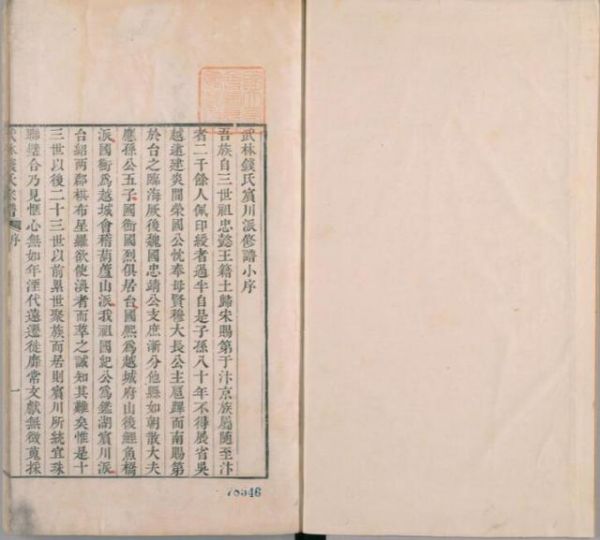 武林錢氏賓川派修譜小序
吾族自三世祖忠懿王籍土歸宋賜第于汴京族屬隨至汴
者二千餘人佩印綬者過半自是子孫八十年不得展省吳
越逮建炎間榮國公忱奉母賢穆大長公主扈蹕而南賜第
於台之臨海厥後魏國忠靖公支庶漸分他縣如朝散大夫
應孫公五子國衝國烈俱居台國熙為越城府山後鯉魚橋
派國衛為越城會稽葫蘆山派我祖國紀公為鑑湖賓川派
台紹兩郡棋布星羅欲使渙者而萃之誠知其難矣惟是十
三世以後二十三世以前累世聚族而居則賓川所統宜珠
聯璧合乃見愜心無如年湮代遠遷徙靡常文獻無徵蒐採
武林錢氏宗譜 序 一